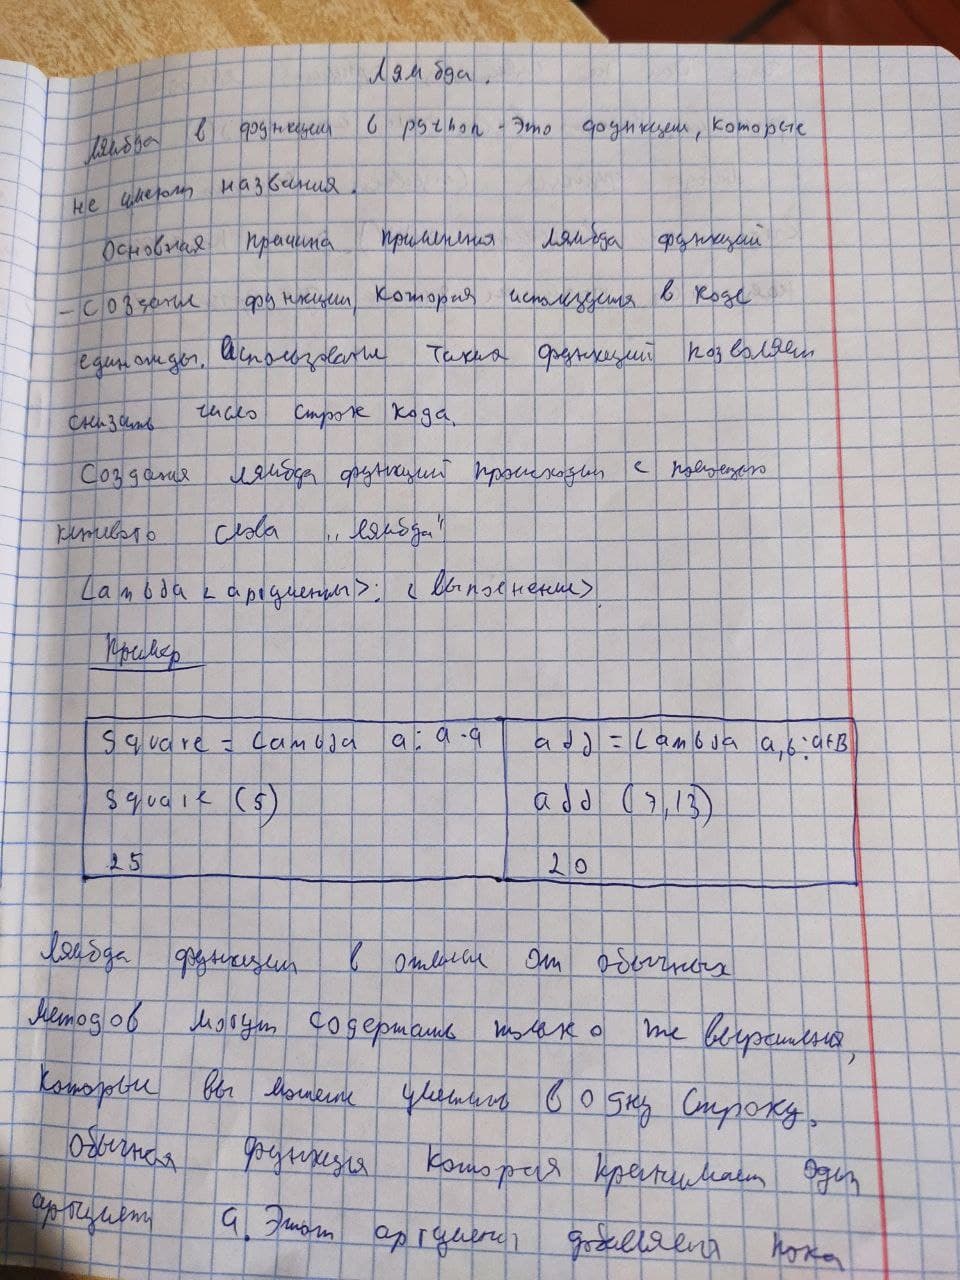 Лямбда.
Лямбда в функции в python - это функции, которые
не имеют названия.
Основная причина применения лямбда функций
- Создание функции, которая используется в коде
единожды. Использование таких функций позволяет
снизить число строк кода.
Создания лямбда функций происходит с помощью
ключевого слова „лямбда"
Lambda < аргументы>: < выполнение>.
Пример
Square = Lambda a: a·a
Square (5)
25
add = Lambda a,b: a+B
add (7,13)
20
Лямбда функции в отличии от обычных
методов могут содержать только те выражения,
которые вы можете уместить в одну строку.
Обычная функция которая принимает один
аргумент a. Этот аргумент добавляется пока